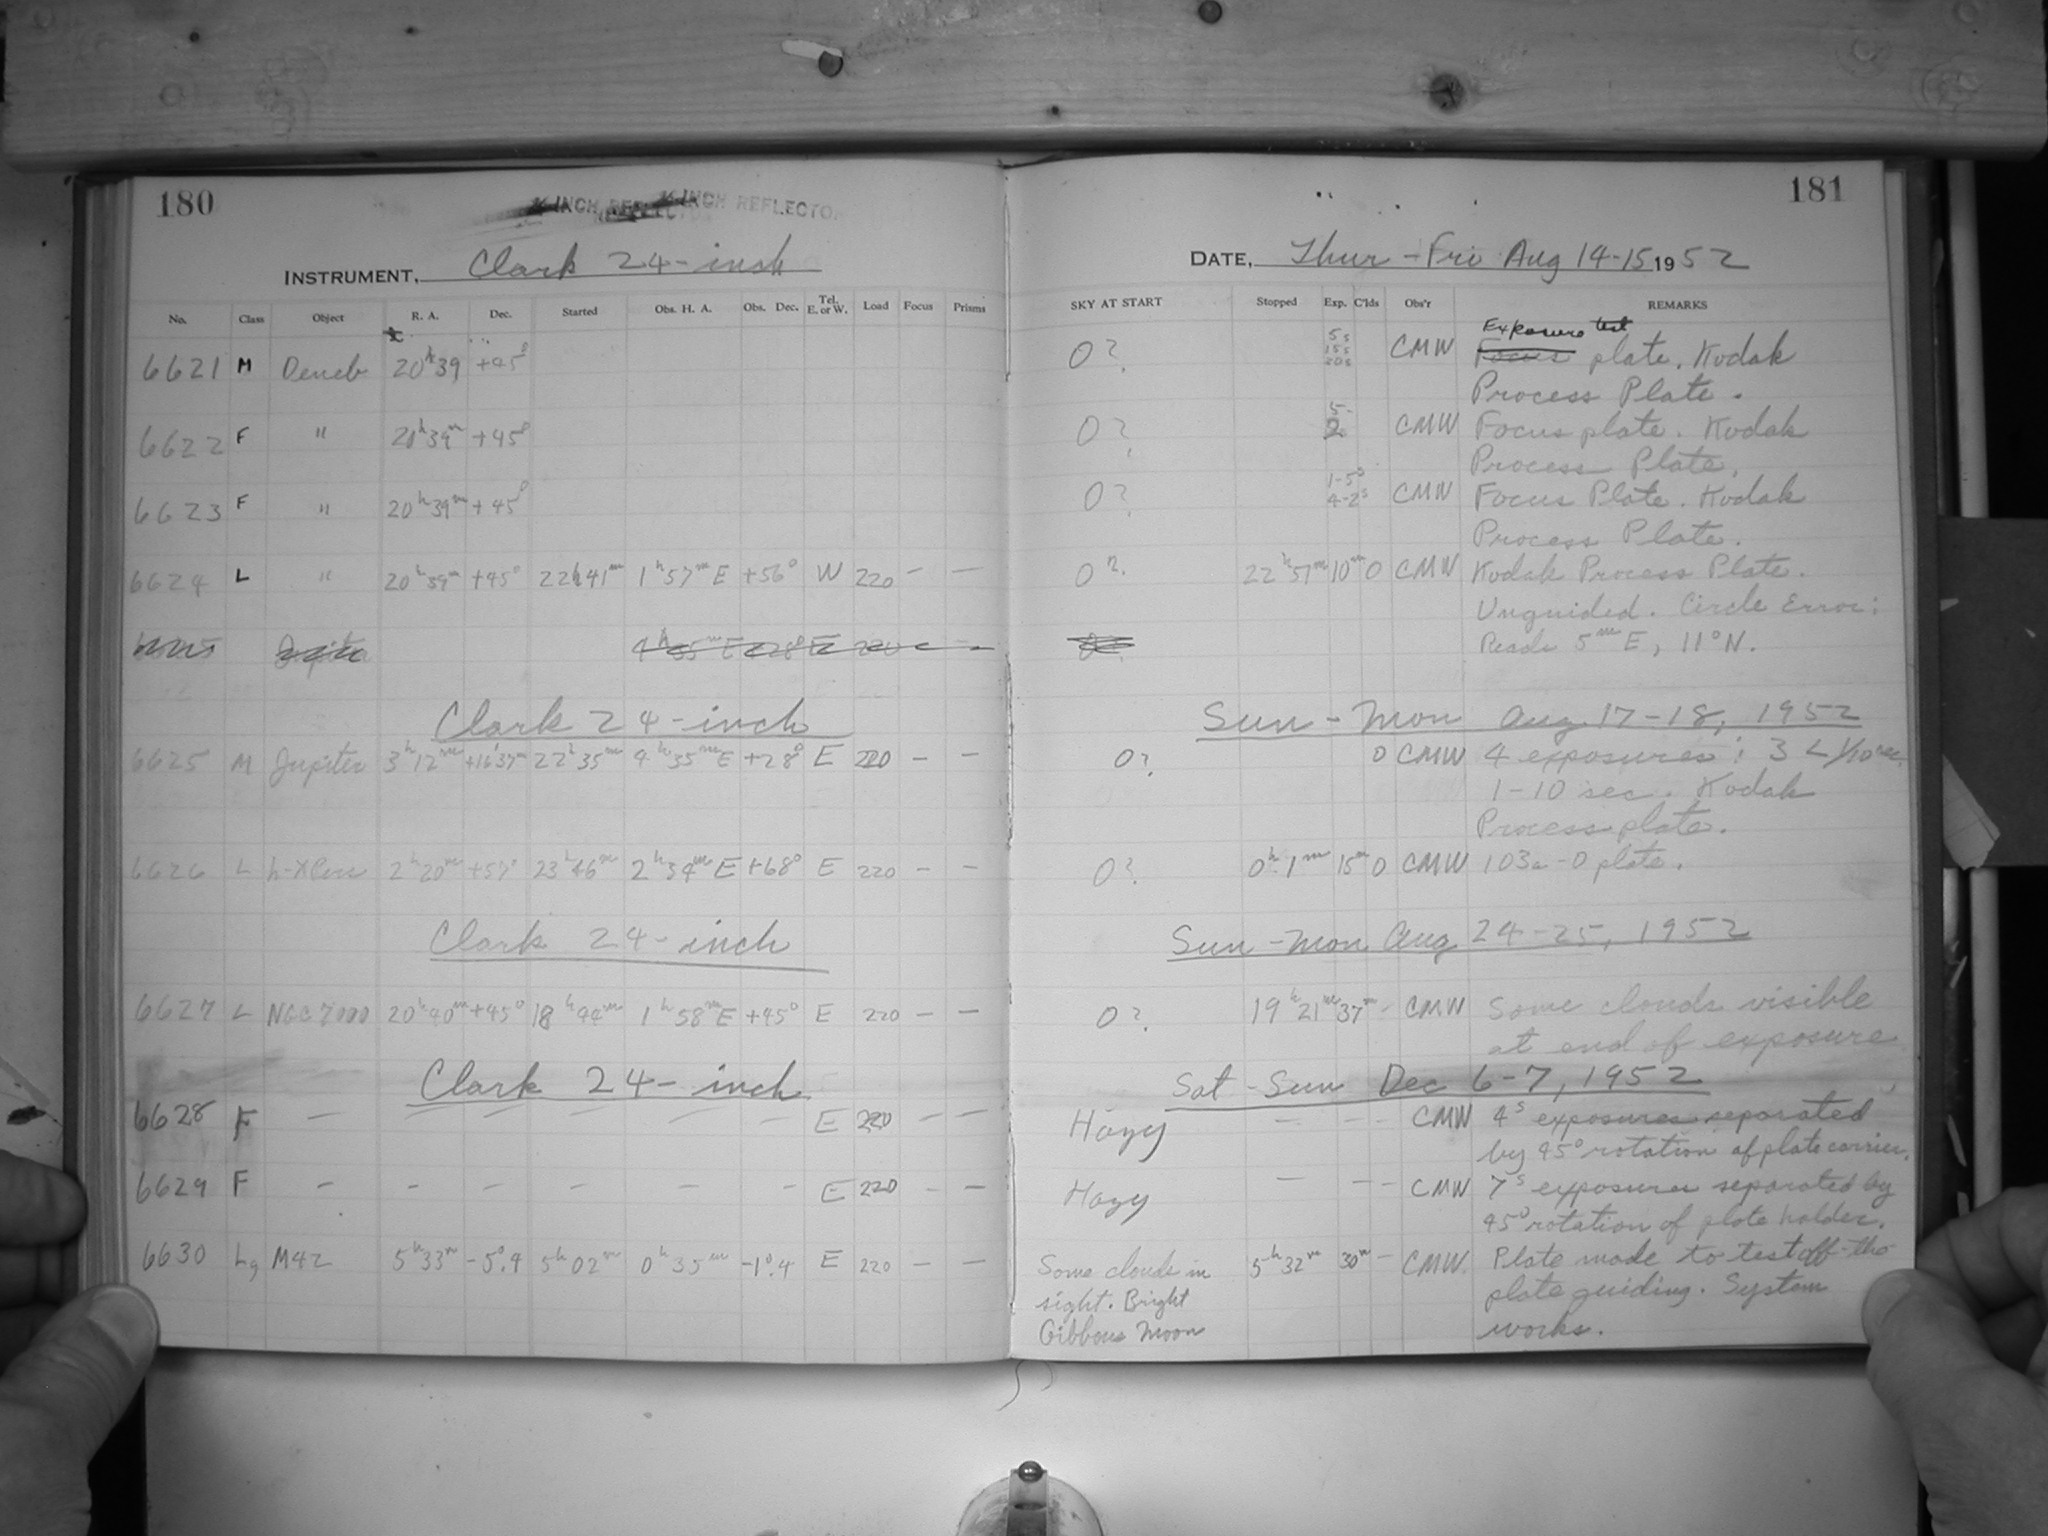 180
INCH REFLECTOR
INSTRUMENT, Clark 24-inch
No. Class Object R. A. Dec. Started Obs. H. A. Obs. Dec. Tel. E. or W. Load Focus Prisms
6621 M Deneb 20h39 +45°
6622 F " 20h39m +45°
6623 F " 20h39m +45°
6624 L " 20h39m +45° 22h41m 1h57mE +56° W 220 - -
Clark 24-inch
6625 M Jupiter 3h12m +16°37' 22h35m 4h35mE +28° E 220 - -
6626 L h-χPers 2h20m +57° 23h46m 2h34mE +68° E 220 - -
Clark 24-inch
6627 L NGC7000 20h40m +45° 18h44m 1h58mE +45° E 220 - -
Clark 24-inch
6628 F - - - - - E 220 - -
6629 F - - - - - - E 220 - -
6630 Lg M42 5h33m -5°.4 5h02m 0h35m -1°.4 E 220 - -
181
DATE, Thur-Fri Aug 14-15 1952
SKY AT START Stopped Exp. C'lds Obs'r REMARKS
0? 5s 15s CMW Exposure test
Focus plate. Kodak
Process Plate.
0? 5- 2 CMW Focus plate. Kodak
Process Plate.
0? 1-5s 4-2s CMW Focus Plate. Kodak
Process Plate.
0? 22h51m 10m 0 CMW Kodak Process Plate.
Unguided. Circle Error:
Reads 5mE, 11°N.
Sun-Mon Aug 17-18, 1952
0? 0 CMW 4 exposures: 3 < 1/10 sec,
1-10 sec. Kodak
Process plate.
0? 0h1m 15m 0 CMW 103a-O plate.
Sun-Mon Aug 24-25, 1952
0? 19h21m 37m - CMW Some clouds visible
at end of exposure
Sat-Sun Dec 6-7, 1952
Hazy - - - CMW 4s exposures separated
by 45° rotation of plate carrier.
Hazy - - - CMW 7s exposures separated by
45° rotation of plate holder.
Some clouds in 5h32m 30m - CMW. Plate made to test off-the
sight. Bright plate guiding. System
Gibbous Moon works.